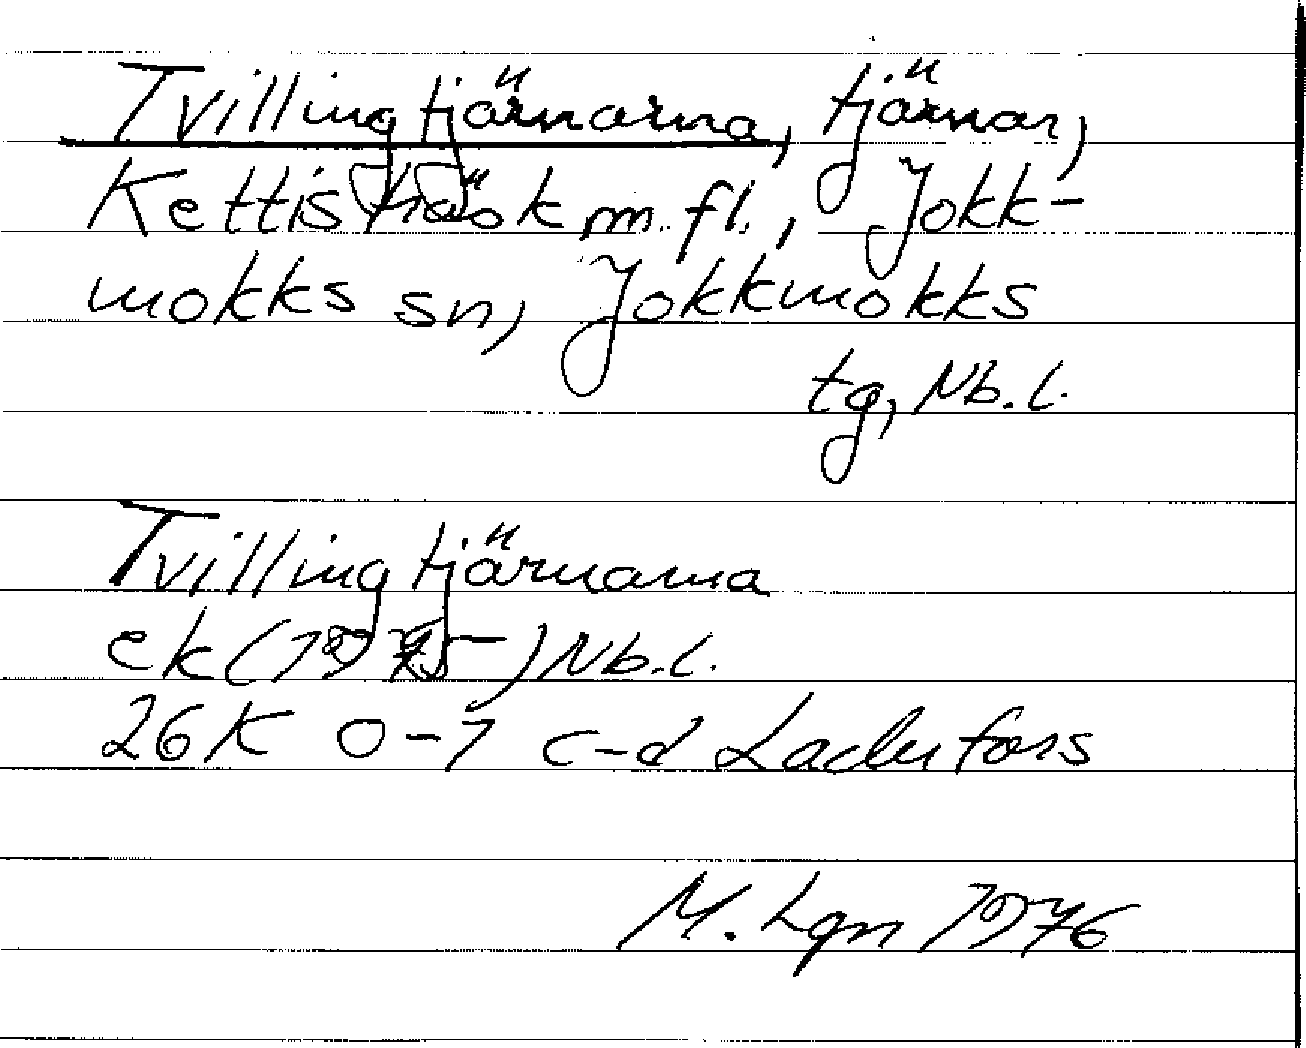 Tvillingtjärnarna, tjärnar,
Kettisträsk m.fl., Jokk-
mokks sn, Jokkmokks
tg, Nb.l.
Tvillingtjärnarna
ek (1975) Nb.l.
26K 0-1 c-d Ladufors
M. Lgn 1976